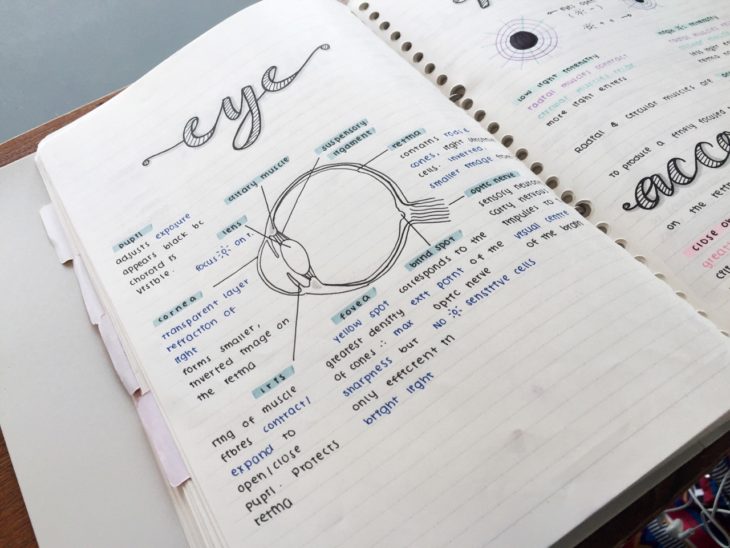 eye
suspensory
ligament
ciliary muscle
retina
contains rods,
cones, light
cells. inverted,
smaller image
lens
focus on
optic nerve
sensory neurons
carry nervous
impulses to
visual centre
of the brain
pupil
adjusts exposure
appears black bc
choroid is
visible.
blind spot
corresponds to the
exit point of the
optic nerve
NO sensitive cells
cornea
transparent layer
refraction of
light
forms smaller,
inverted image on
the retina
fovea
yellow spot
greatest density
of cones ∴ max
sharpness but
only efficient in
bright light
iris
ring of muscle
fibres contract/
expand to
open/close
pupil. Protects
retina
low light intensity
radial muscles contract
circular muscles relax
more light enters
high light intensity
Radial & circular muscles are
to produce a finely focused
acco
on the retina
close